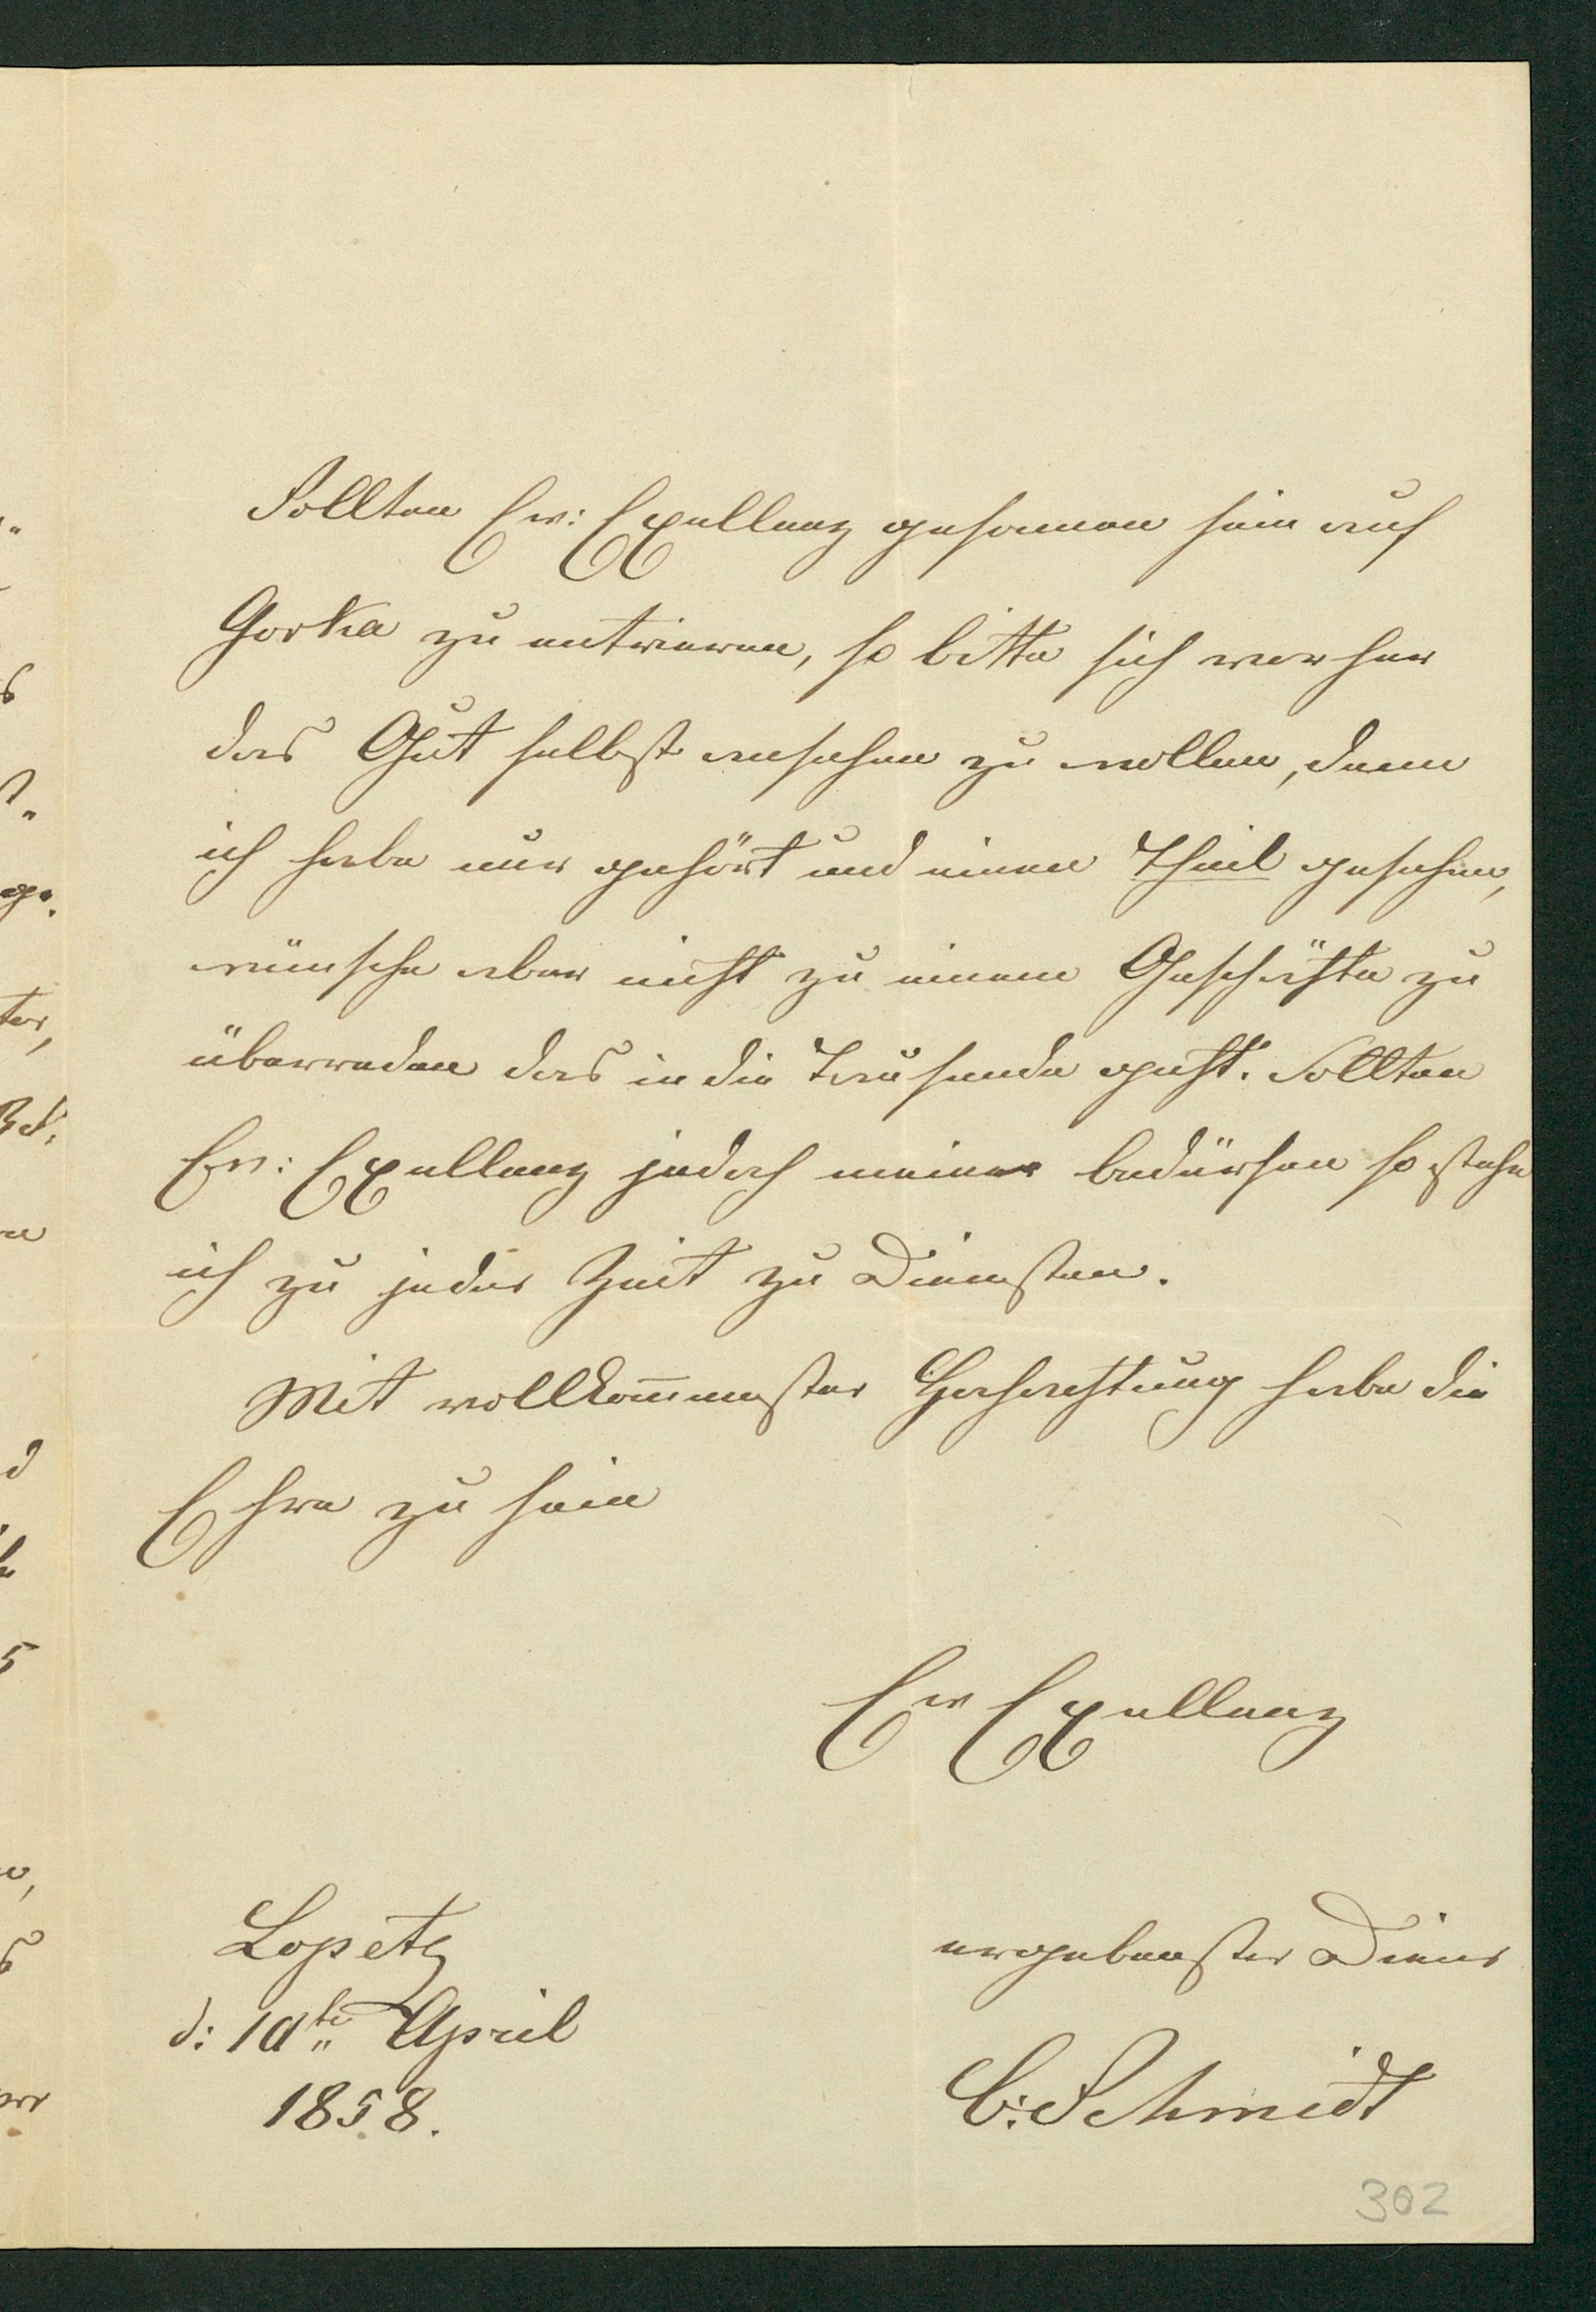 Sollten Ew: Exzellenz gesonnen sein auf
Gorka zu entrieren, so bitte sich vorher
das Gut selbst ansehen zu wollen, denn
ich habe nur gehört und einen Theil gesehen,
wünsche aber nicht zu einem Geschäfte zu
überreden das in die Tausende geht. Sollten
Ew: Exzellenz jedoch meiner bedürfen so stehe
ich zu jeder Zeit zu Diensten.
Mit vollkommenster Hochachtung habe die
Ehre zu sein
Ew Exzellenz
ergebenster Diener
C: Schmidt
Lopetz
d: 10te April
1858.
302